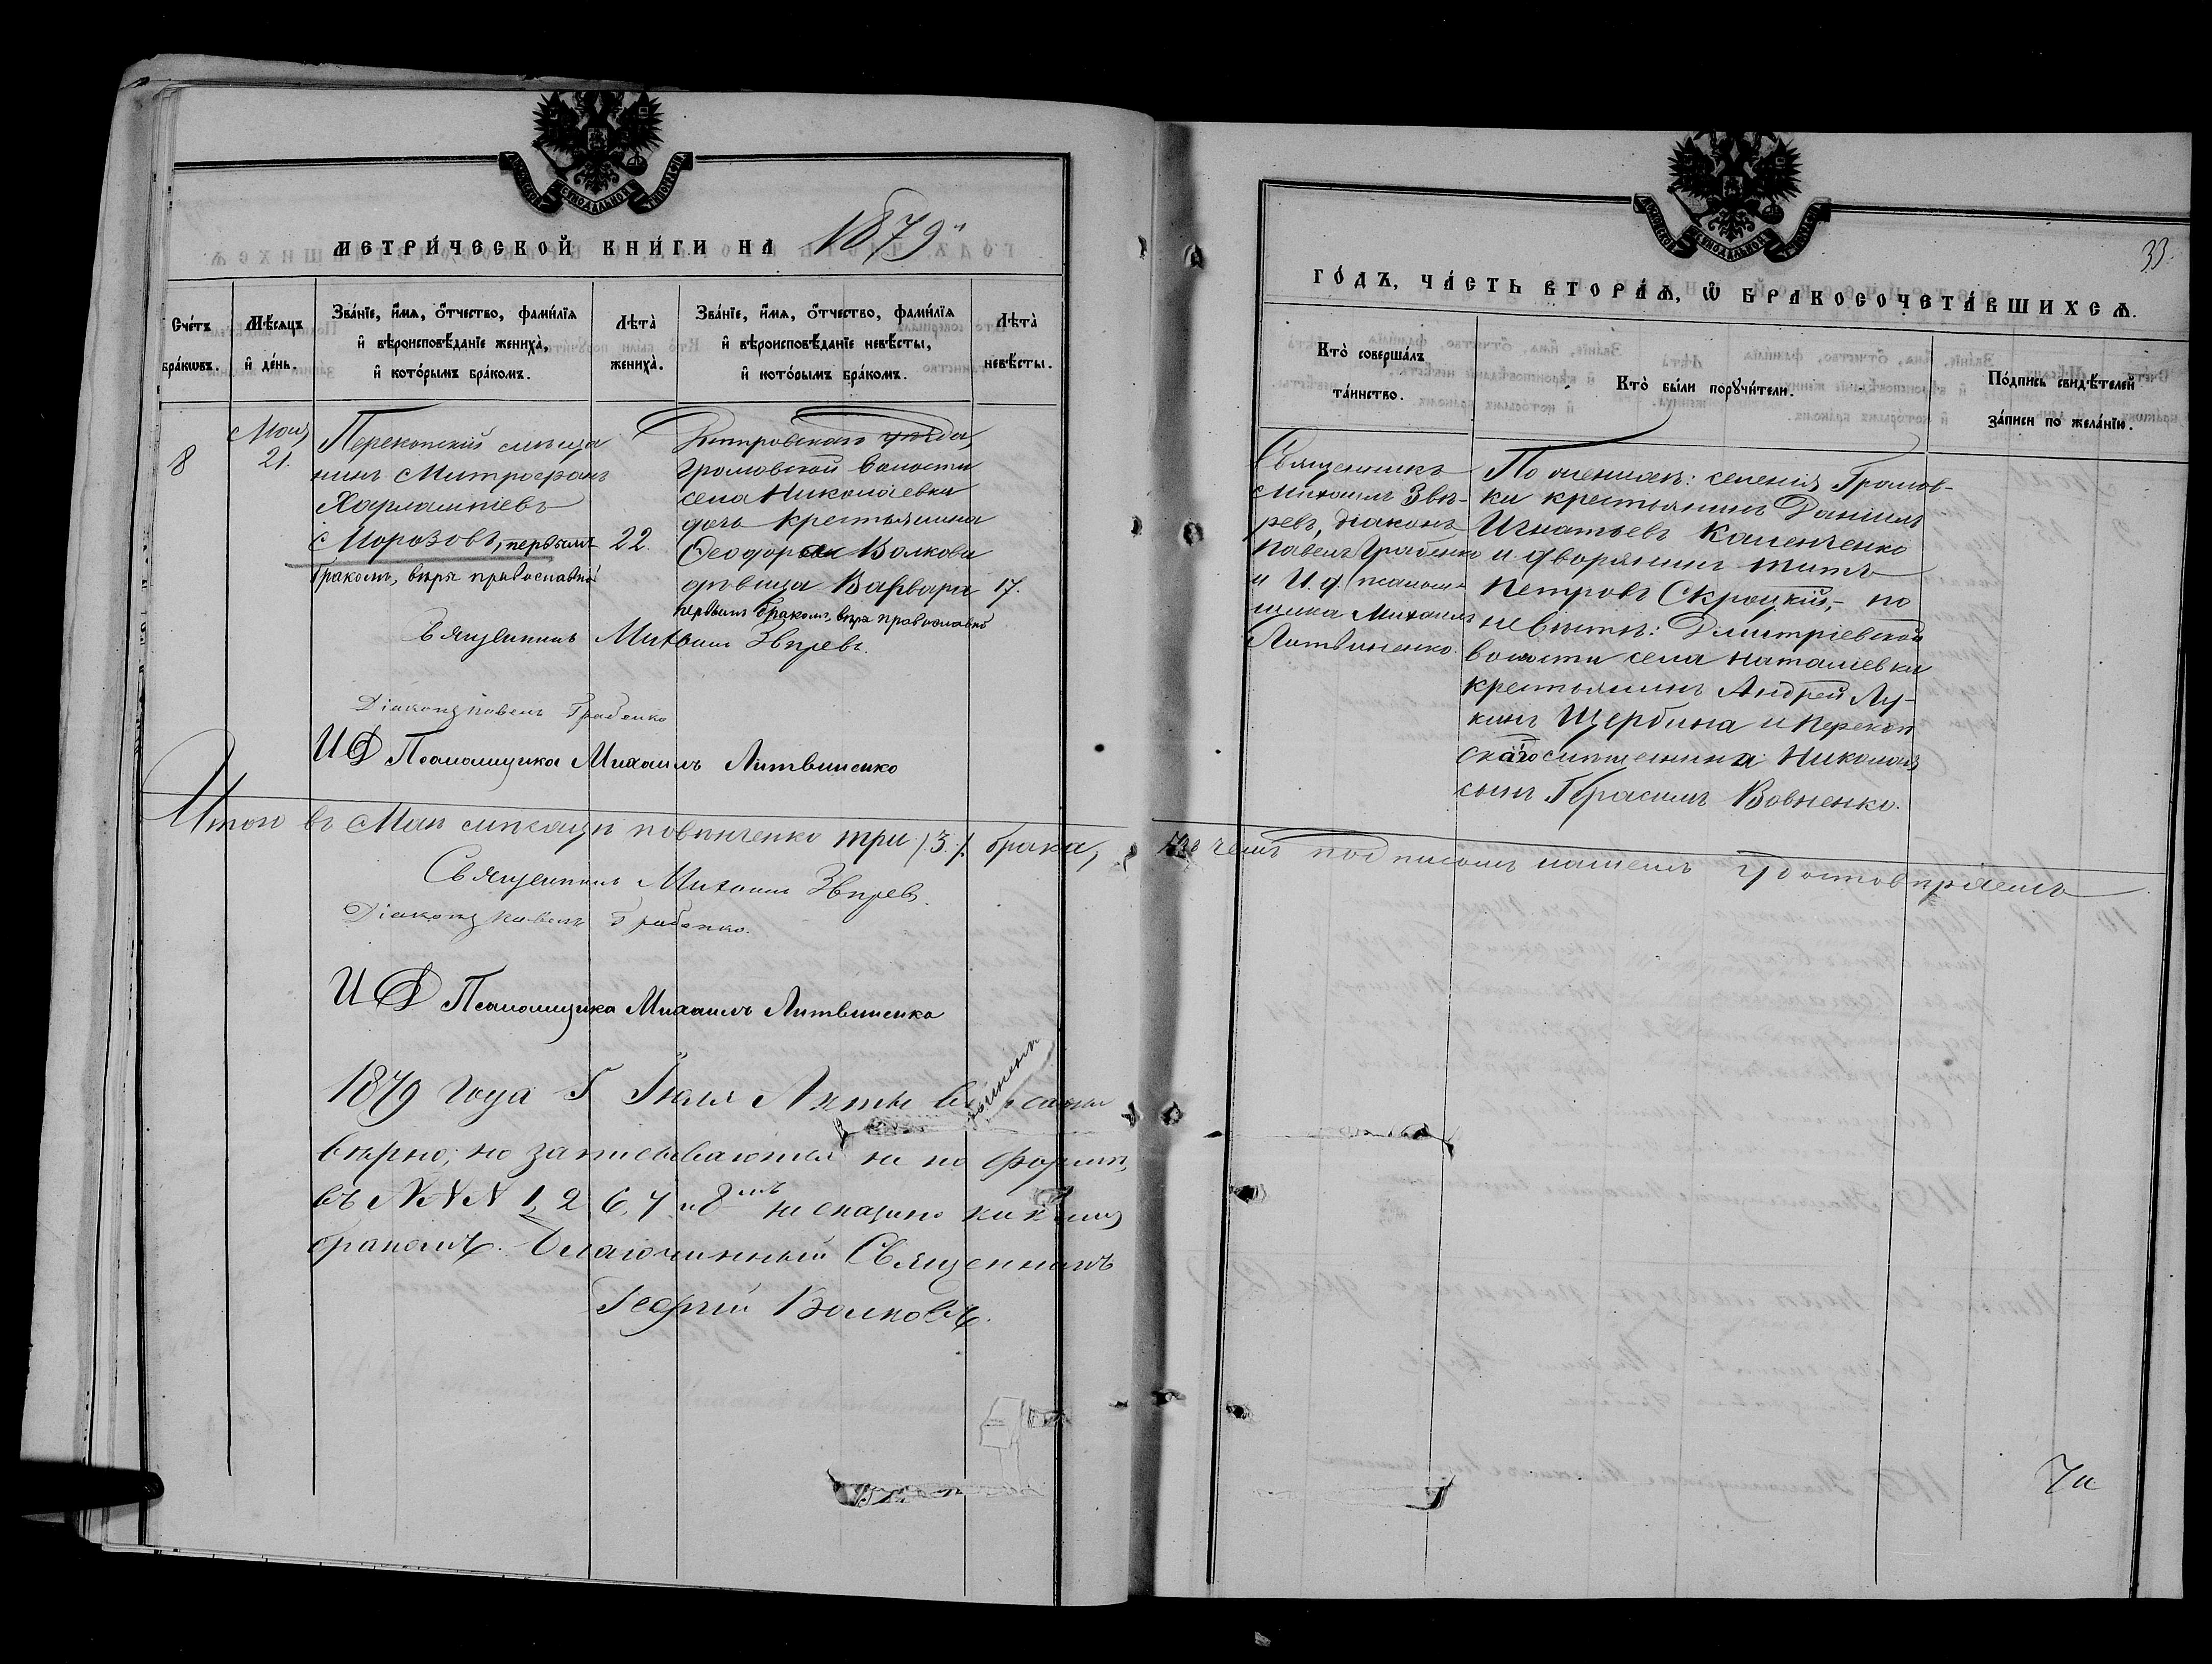 МЕТРИЧЕСКОЙ КНИГИ НА 1879й
Счетъ браковъ.
Мѣсяцъ и день.
Званіе, имя, отчество, фамилія и вѣроисповѣданіе жениха, и которымъ бракомъ.
Лѣта жениха.
Званіе, имя, отчество, фамилія и вѣроисповѣданіе невѣсты, и которымъ бракомъ.
Лѣта невѣсты.
8
Мая
21.
Перекопскій мѣща
нинъ Митрофанъ
Харлампіевъ
Морозовъ, первымъ
бракомъ, вѣры православной
22.
уѣзда,
Громовской волости
села Николаевки
дочь крестьянина
Ѳеодора Волкова
дѣвица Варвара
первымъ бракомъ, вѣры православной
17.
Священникъ Михаилъ Звѣревъ.
Діаконъ Павелъ Грабенко
И Д Псаломщика Михаилъ Литвиненко
Итого въ Маѣ мѣсяцѣ повѣнчено три /3/. брака,
Священникъ Михаилъ Звѣревъ.
Діаконъ Павелъ Грабенко.
И Д Псаломщика Михаилъ Литвиненко
1879 года Іюля
вѣрно, но записываются не по формѣ,
въ №№№ 1, 2, 6, 7 и 8мъ не сказано какимъ
бракомъ. Благочинный Священникъ
Георгій Волковъ.
33.
ГОДЪ, ЧАСТЬ ВТОРАЯ, Ѡ БРАКОСОЧЕТАВШИХСЯ.
Кто совершалъ таинство.
Кто были поручители.
Подпись свидѣтелей записи по желанію.
Священникъ
Михаилъ Звѣ-
ревъ, діаконъ
Павелъ Грабенко
и И. д. псалом-
щика Михаилъ
Литвиненко.
По женихѣ: селенія Громов-
ки крестьянинъ Даніилъ
Игнатьевъ Каменченко
и дворянинъ Титъ
Петровъ Скроцкій, – по
невѣстѣ: Дмитріевской
волости села Наталіевки
крестьянинъ Андрей Лу-
кинъ Щербина и Перекоп
скаго мѣщанина Николая
сынъ Герасимъ Вовненко.
въ чемъ подписомъ нашемъ удостовѣряемъ